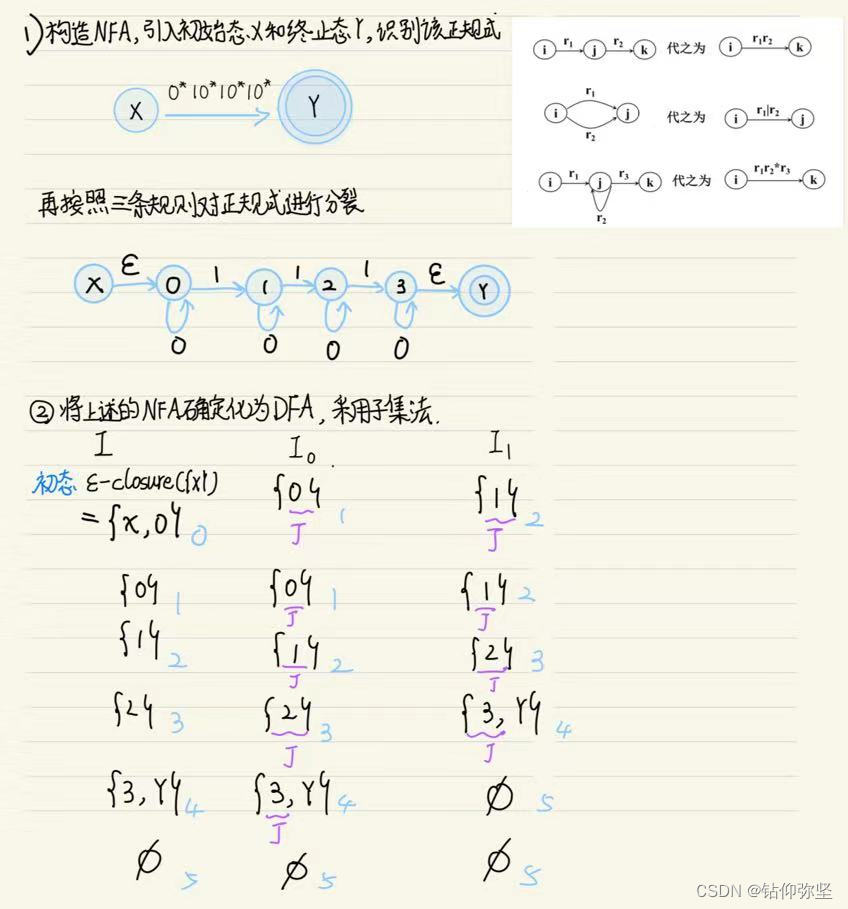 1) 构造NFA,引入初始态X和终止态Y,识别该正规式
X 0*10*10*10* Y
i r₁ j r₂ k 代之为 i r₁r₂ k
i r₁ r₂ j 代之为 i r₁|r₂ j
i r₁ j r₂ r₃ k 代之为 i r₁r₂*r₃ k
再按照三条规则对正规式进行分裂
X ε 0 1 1 1 2 1 3 ε Y
0 0 0 0
② 将上述的NFA确定化为DFA,采用子集法.
I I₀ I₁
初态 ε-closure({x})
={x,0} 0 {0} J 1 {1} J 2
{0} 1 {0} J 1 {1} J 2
{1} 2 {1} J 2 {2} J 3
{2} 3 {2} J 3 {3,Y} J 4
{3,Y} 4 {3,Y} J 4 ∅ 5
∅ 5 ∅ 5 ∅ 5
CSDN @钻仰弥坚